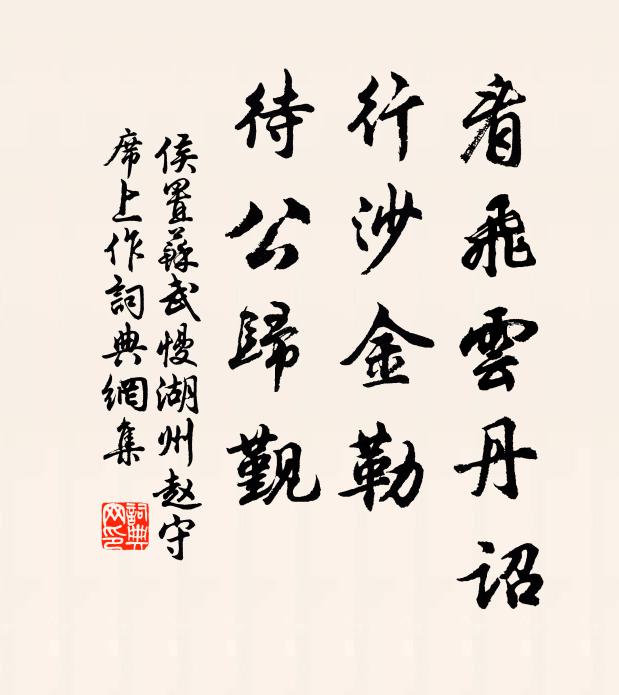 看飛雲丹詔
行沙金勒
待公歸觐
侯置蘇武慢湖州赵守
席上作詞典網集
詞典
网印